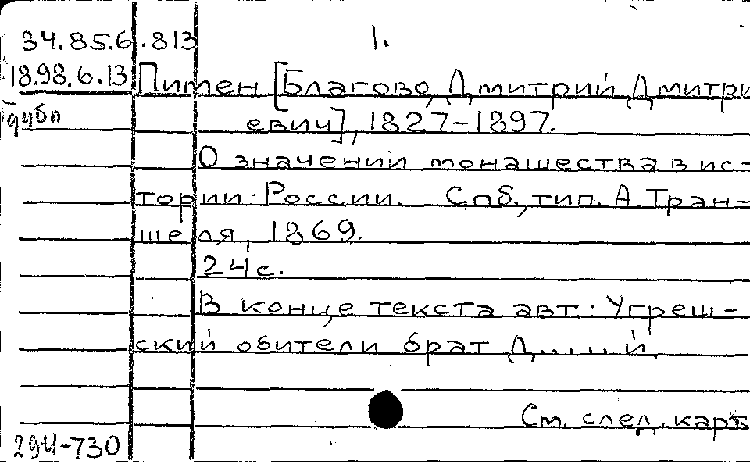 34.85.6.813 1.
18.98.6.13 Пимен [Благово, Дмитрий Дмитри
дубл евич], 1827-1897.
О значении монашества в ис-
тории России. Спб., тип. А. Тран-
шеля, 1869.
24 с.
В конце текста авт.: Угреш-
ский обители брат Д.....й.
См. след. карт
294-730